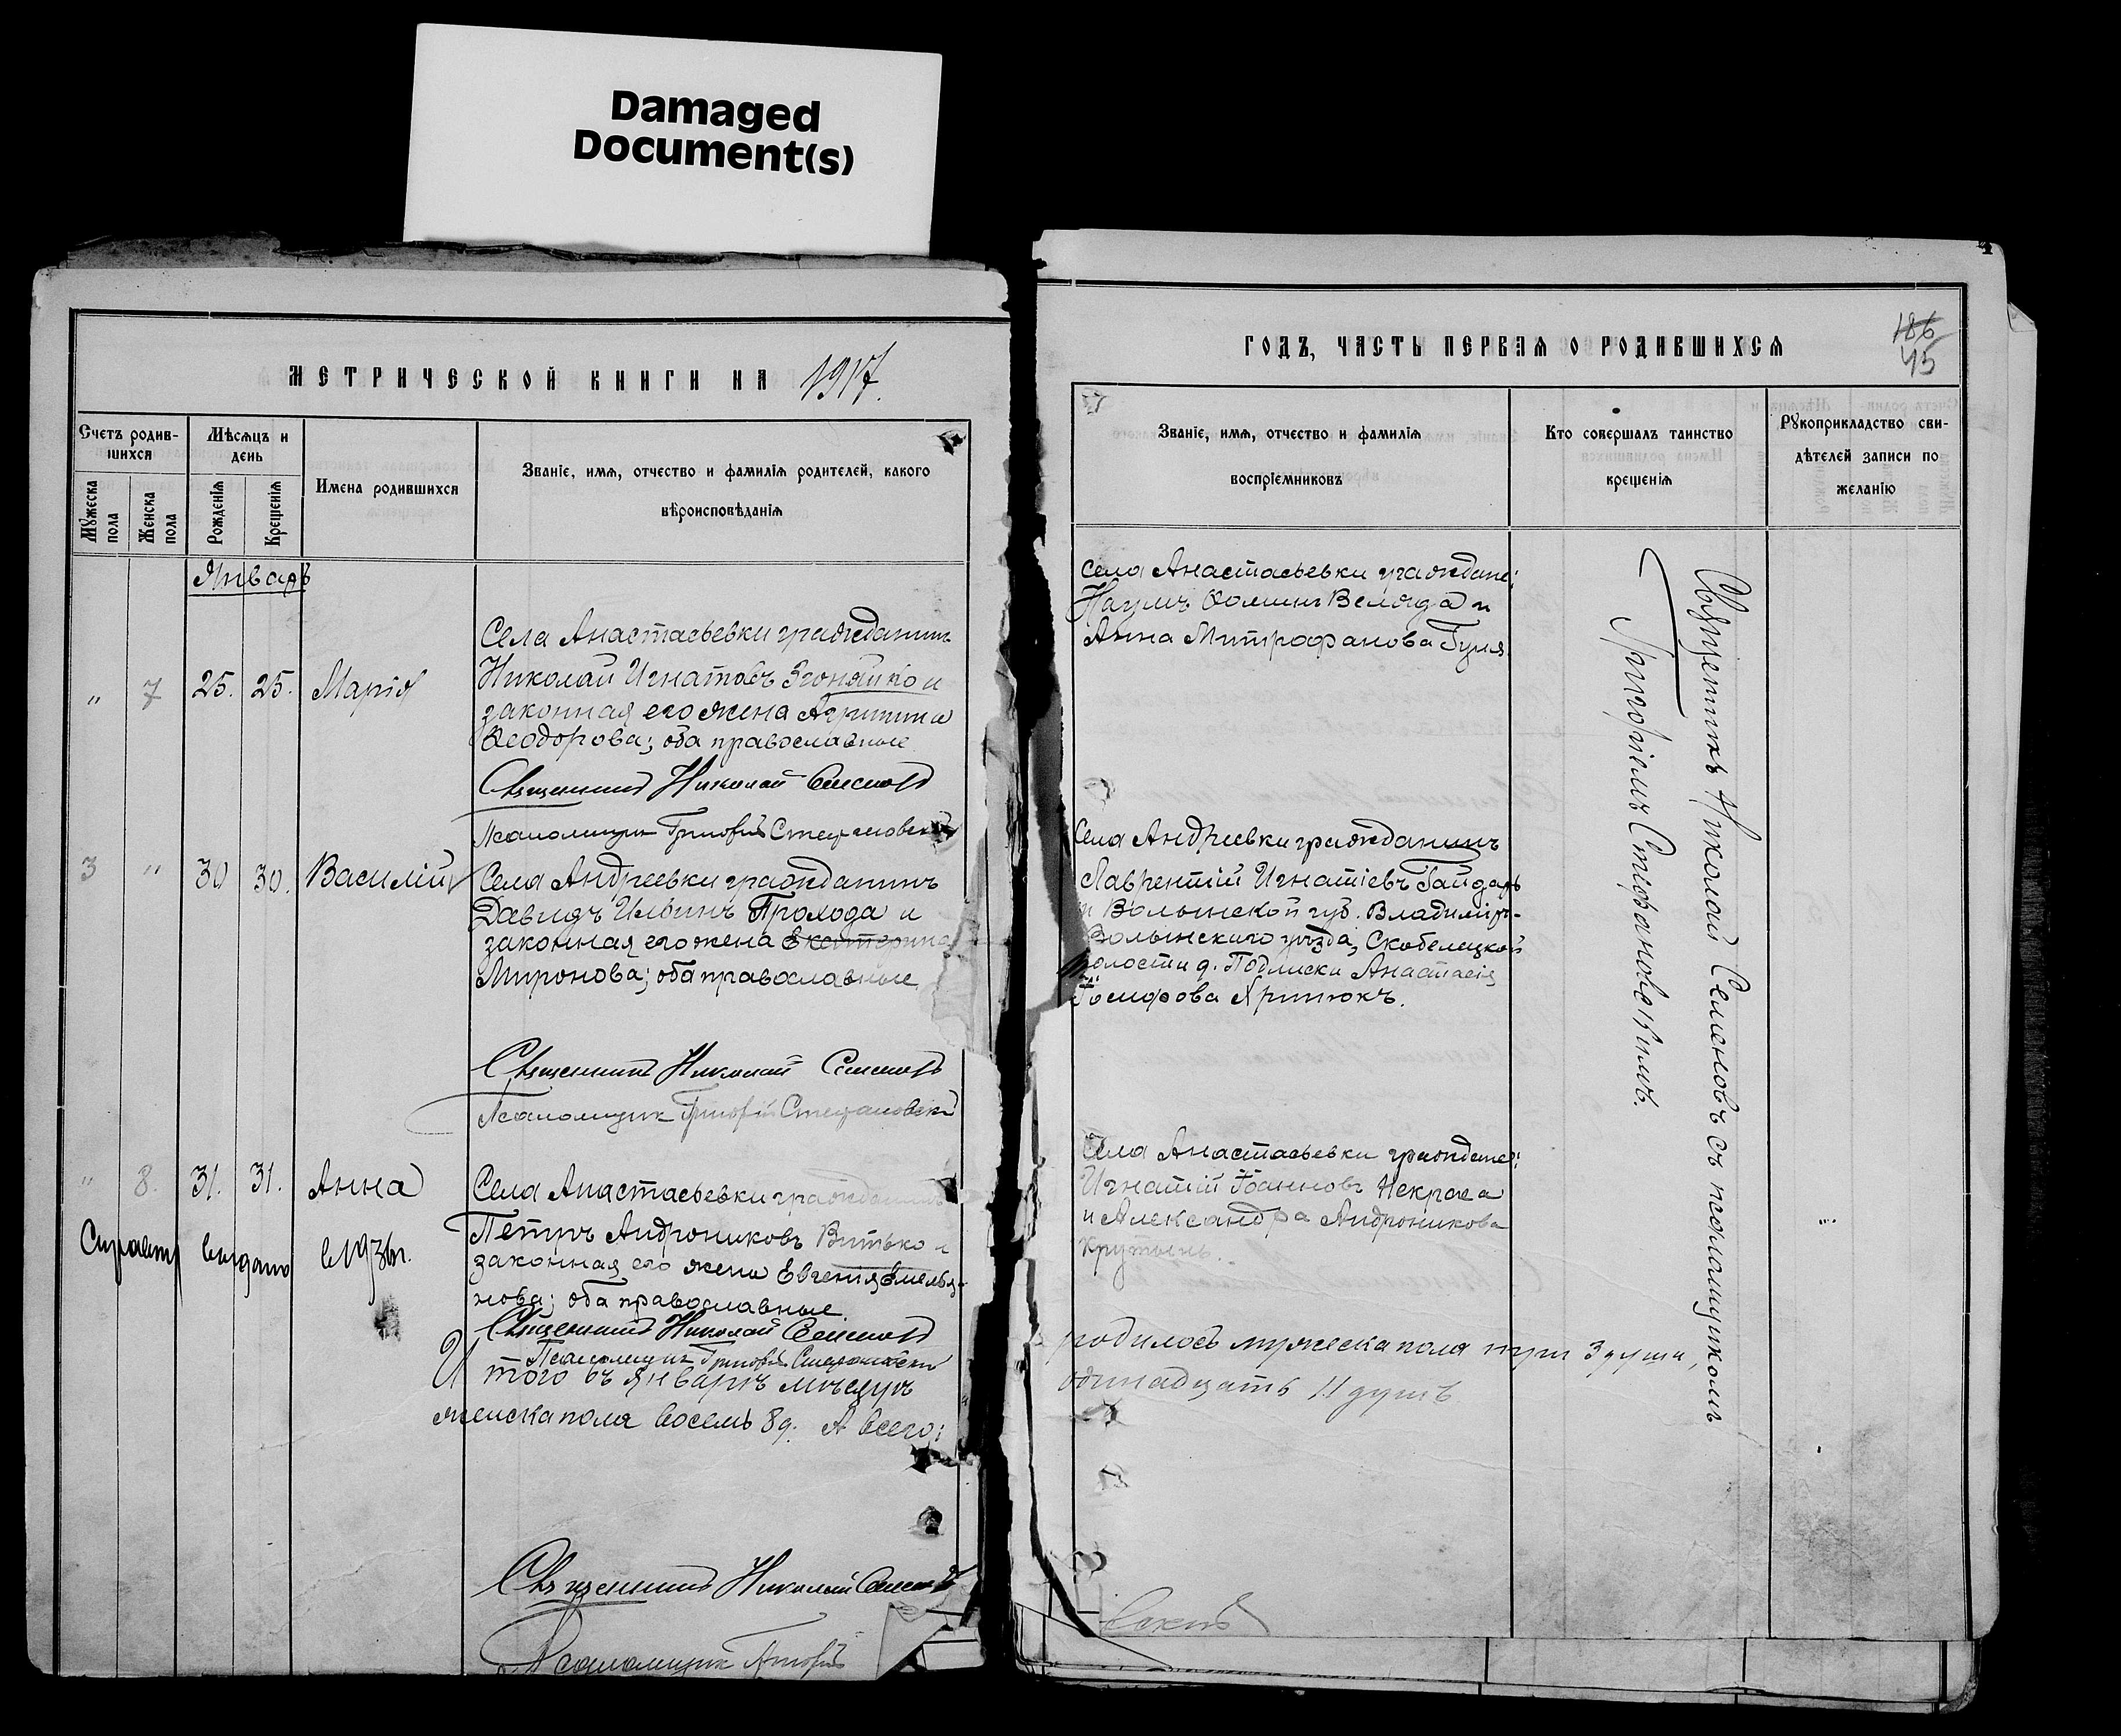 Damaged
Document(s)
МЕТРИЧЕСКОЙ КНИГИ НА 1917.
Счетъ родив-
шихся
Мѣсяцъ и
день
Мужеска
пола
Женска
пола
Рожденія
Крещенія
Имена родившихся
Званіе, имя, отчество и фамилія родителей, какого
вѣроисповѣданія
Январь
" 7 25. 25. Марія
Села Анастасьевки гражданинъ
Николай Игнатовъ Згоняйко и
законная его жена Агрипина
Ѳеодорова; оба православные
Священникъ Николай Семеновъ
Псаломщик Григорій Стефановскій
3 " 30 30. Василій
Села Андреевки гражданинъ
Давидъ Ильинъ Прохода и
законная его жена Екатерина
Миронова; оба православные.
Священникъ Николай Семеновъ
Псаломщик Григорій Стефановскій
" 8. 31. 31. Анна
Села Анастасьевки гражданинъ
Петръ Андрониковъ Витько и
законная его жена Евгенія Емелья-
нова; оба православные
Священникъ Николай Семеновъ
Псаломщик Григорій Стефановскій
выдано в 1936г.
Итого въ январѣ мѣсяцѣ
женска пола восемь 8 д. А всего:
Священникъ Николай Семеновъ
Псаломщик Григорій
ГОДЪ, ЧАСТЬ ПЕРВАЯ О РОДИВШИХСЯ
186
45
Званіе, имя, отчество и фамилія
воспріемниковъ
Кто совершалъ таинство
крещенія
Рукоприкладство сви-
дѣтелей записи по
желанію
Села Анастасьевки граждане:
Наумъ Ѳоминъ и
Анна Митрофанова Гуля.
Села Андреевки гражданинъ
Лаврентій Игнатіевъ Гайдарь
и Волынской губ. Владиміръ-
Волынскаго уѣзда, Скобелецкой
волости д. Подлиски Анастасія
Хритюкъ.
Села Анастасьевки граждане:
Игнатій Іоанновъ Некраса
и Александра Андроникова
Крутынь.
родилось мужеска пола три 3 души,
одинадцать 11 душъ
Священникъ Николай Семеновъ съ псаломщикомъ
Григоріемъ Стефановскимъ.